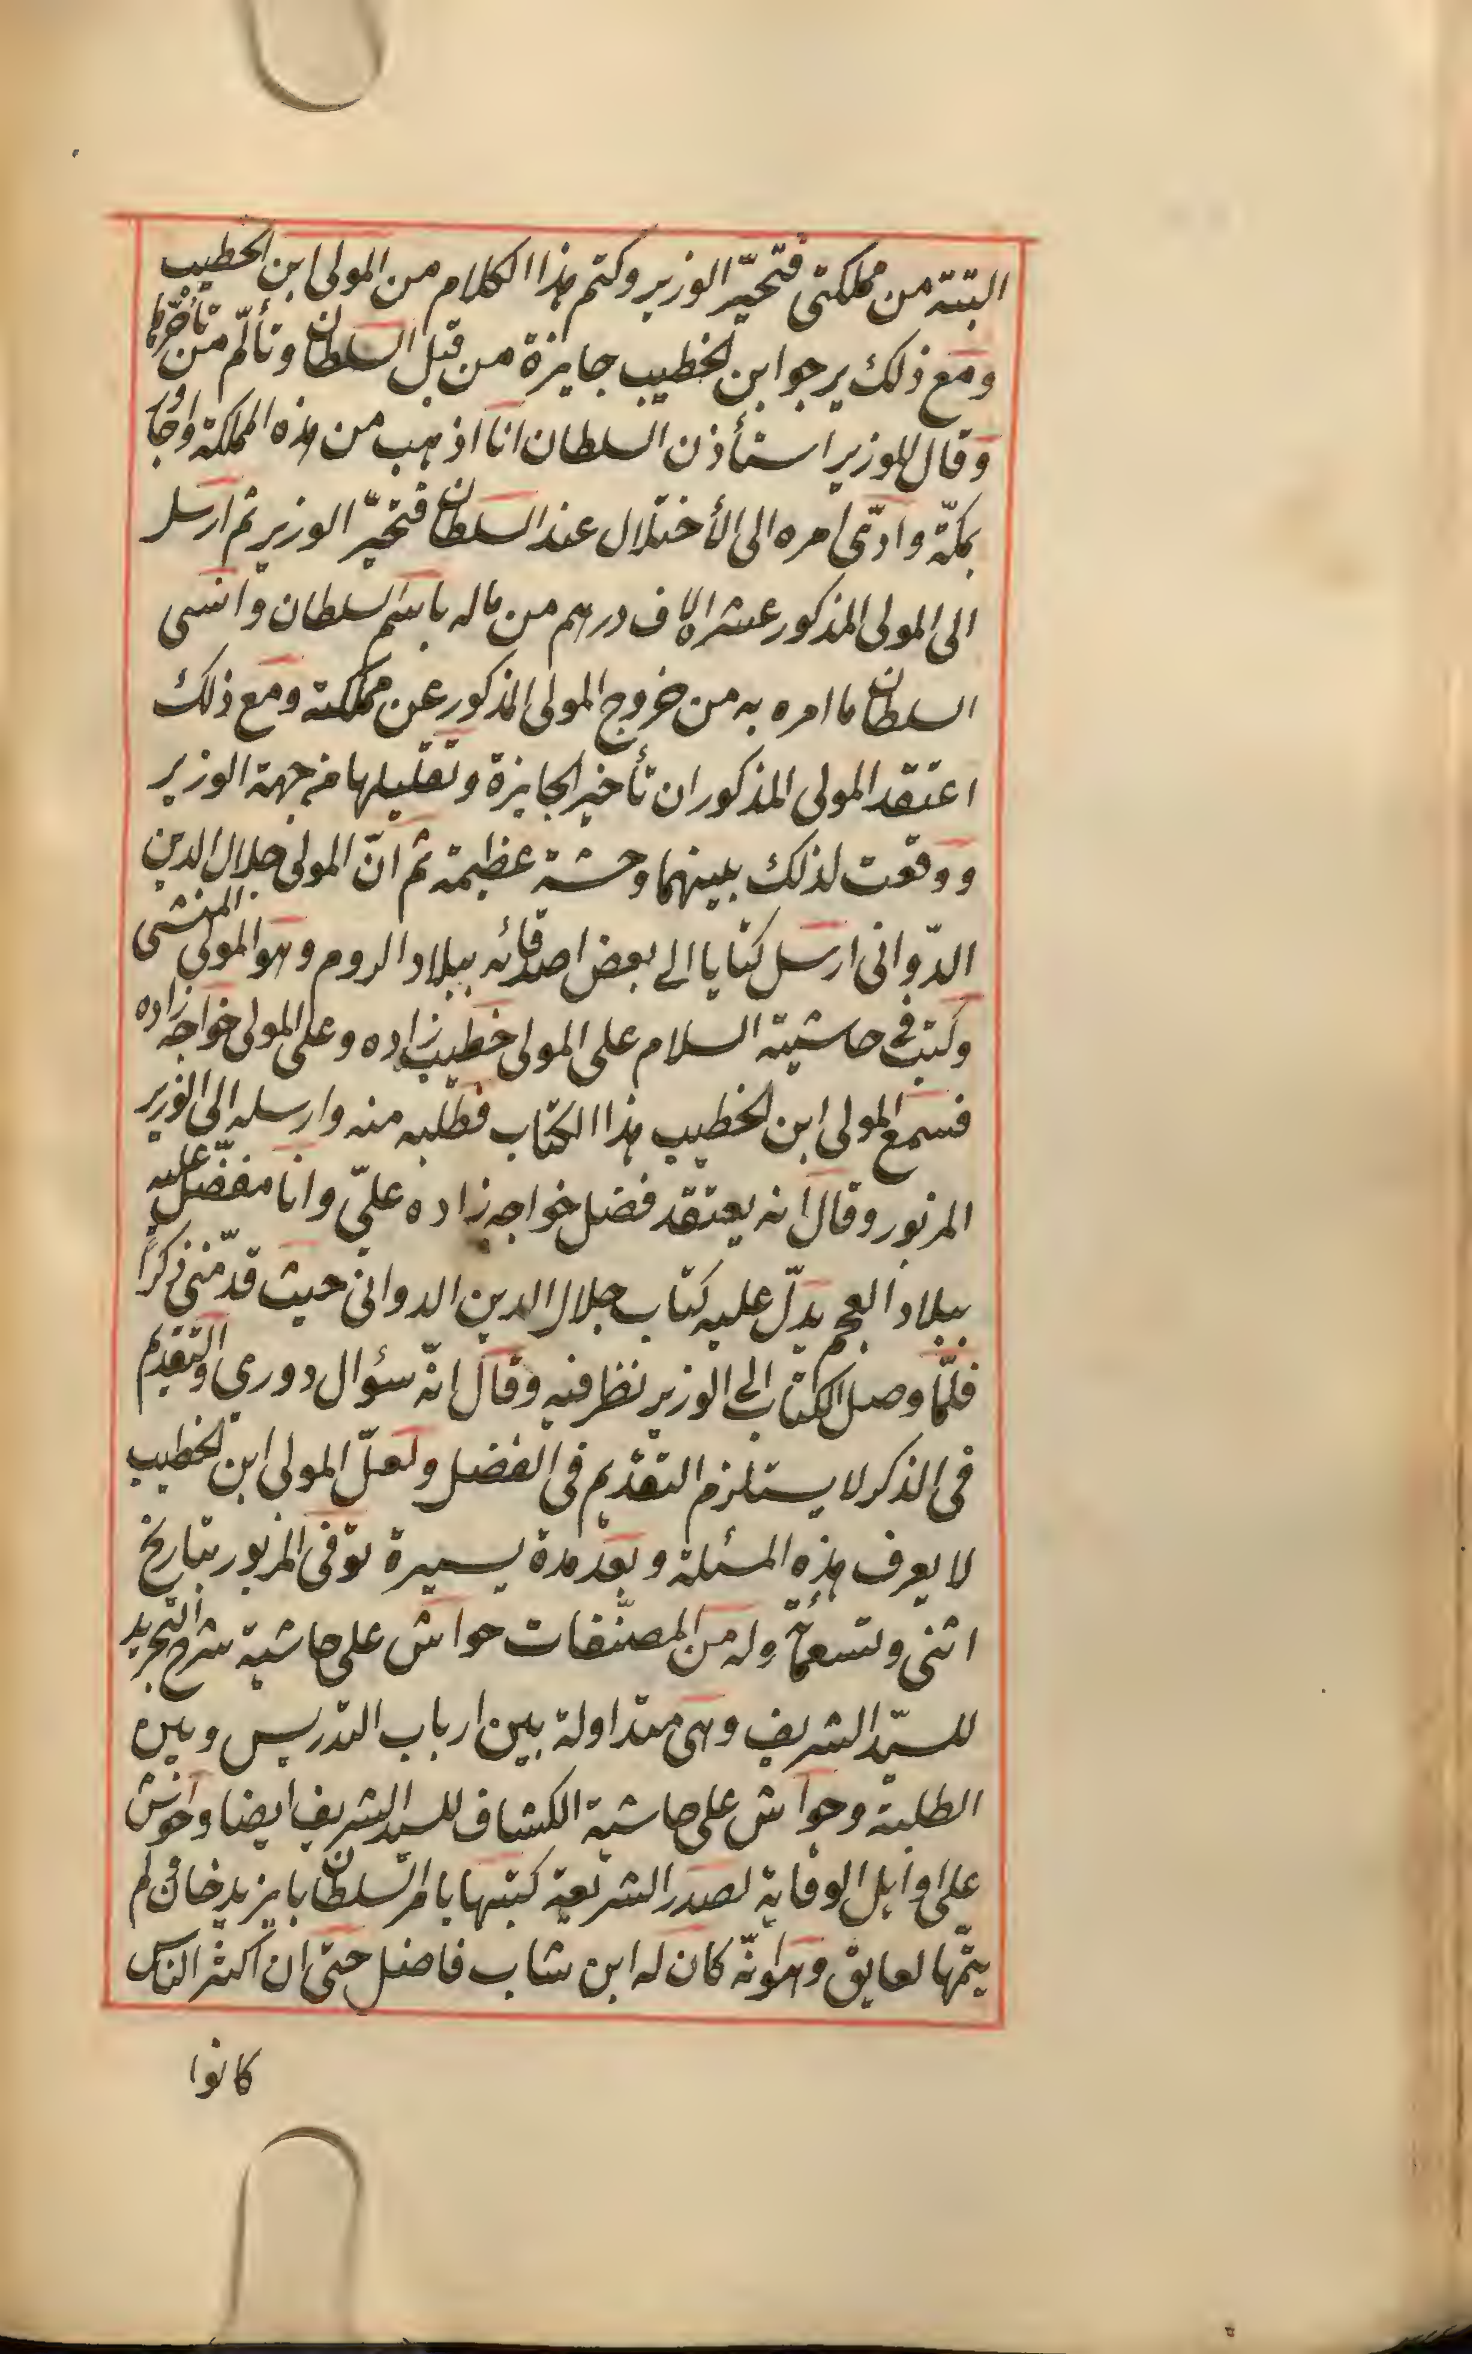 البتة من مملكتى فتحيّر الوزير وكتم هذا الكلام من المولى ابن الخطيب
ومع ذلك يرجو ابن الخطيب جايزة من قبل السلطان وتألّم من تأخّرها
وقال للوزير استأذن السلطان انا اذهب من هذه المملكة واجاور
بمكّة وادّى امره الى الأختلال عند السلطان فتحيّر الوزير ثم ارسل
الى المولى المذكور عشر الاف درهم من ماله باسم السلطان وانسى
السلطان ما امره به من خروج المولى المذكور عن مملكته ومع ذلك
اعتقد المولى المذكور ان تأخير الجايزة وتقليلها من جهة الوزير
ووقعت لذلك بينهما وحشة عظيمة ثم انّ المولى جلال الدين
الدّوانى ارسل كتابا الى بعض اصدقائه ببلاد الروم وهو المولى المنشى
وكتب فى حاشيته السلام على المولى خطيب زاده وعلى المولى خواجه زاده
فسمع المولى ابن الخطيب هذا الكتاب فطلبه منه وارسله الى الوزير
المزبور وقال انه يعتقد فضل خواجه زاده علىّ وانا مفضّل عليه
ببلاد العجم يدلّ عليه كتاب جلال الدين الدوانى حيث قدّمنى ذكرا
فلمّا وصل الكتاب الى الوزير نظر فيه وقال انّه سؤال دورى والتقديم
فى الذكر لا يستلزم التقديم فى الفضل ولعلّ المولى ابن الخطيب
لا يعرف هذه المسئلة وبعد مدة يسيرة توفى المزبور بتاريخ
اثنى وتسعمائة وله من المصنّفات حواش على حاشية شرح التجريد
للسيّد الشريف وهى متداولة بين ارباب التدريس وبين
الطلبة وحواش على حاشية الكشاف للسيد الشريف ايضا وحواش
على اوايل الوقاية لصدر الشريعة كتبها بامر السلطان بايزيد خان لم
يتمّها لعايق وهو انّه كان له ابن شاب فاضل حتى ان اكثر الناس
كانوا